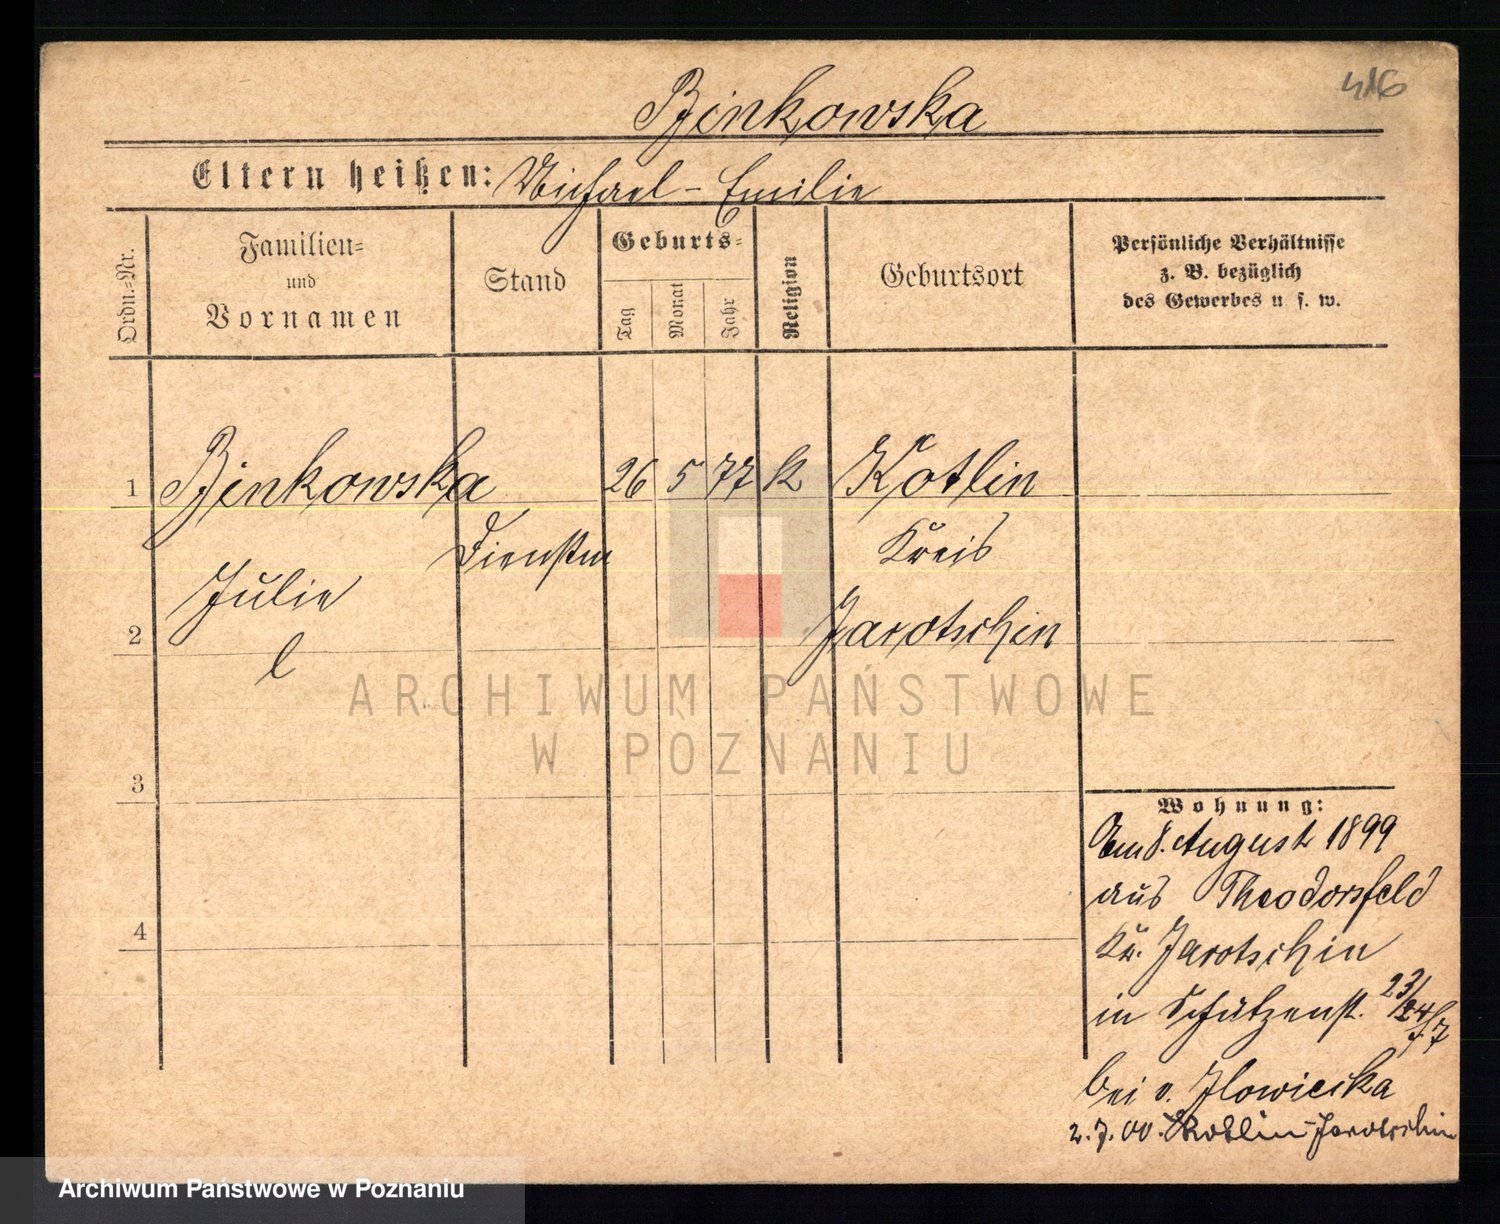 416
Binkowska
Eltern heißen: Michael - Emilie
Ordn.-Nr.
Familien- und Vornamen
Stand
Geburts-
Tag
Monat
Jahr
Religion
Geburtsort
Persönliche Verhältnisse
z. B. bezüglich
des Gewerbes u. s. w.
1 Binkowska 26 5 77 k Kotlin
Dienstm Kreis
Julie
2 Jarotschin
l
ARCHIWUM PAŃSTWOWE
W POZNANIU
3
4
Wohnung:
Am 8. August 1899
aus Theodorsfeld
Kr. Jarotschin
in Schützenst. 23/24
bei v. Ilowiecka
2.7.00. Kotlin-Jarotschin
Archiwum Państwowe w Poznaniu